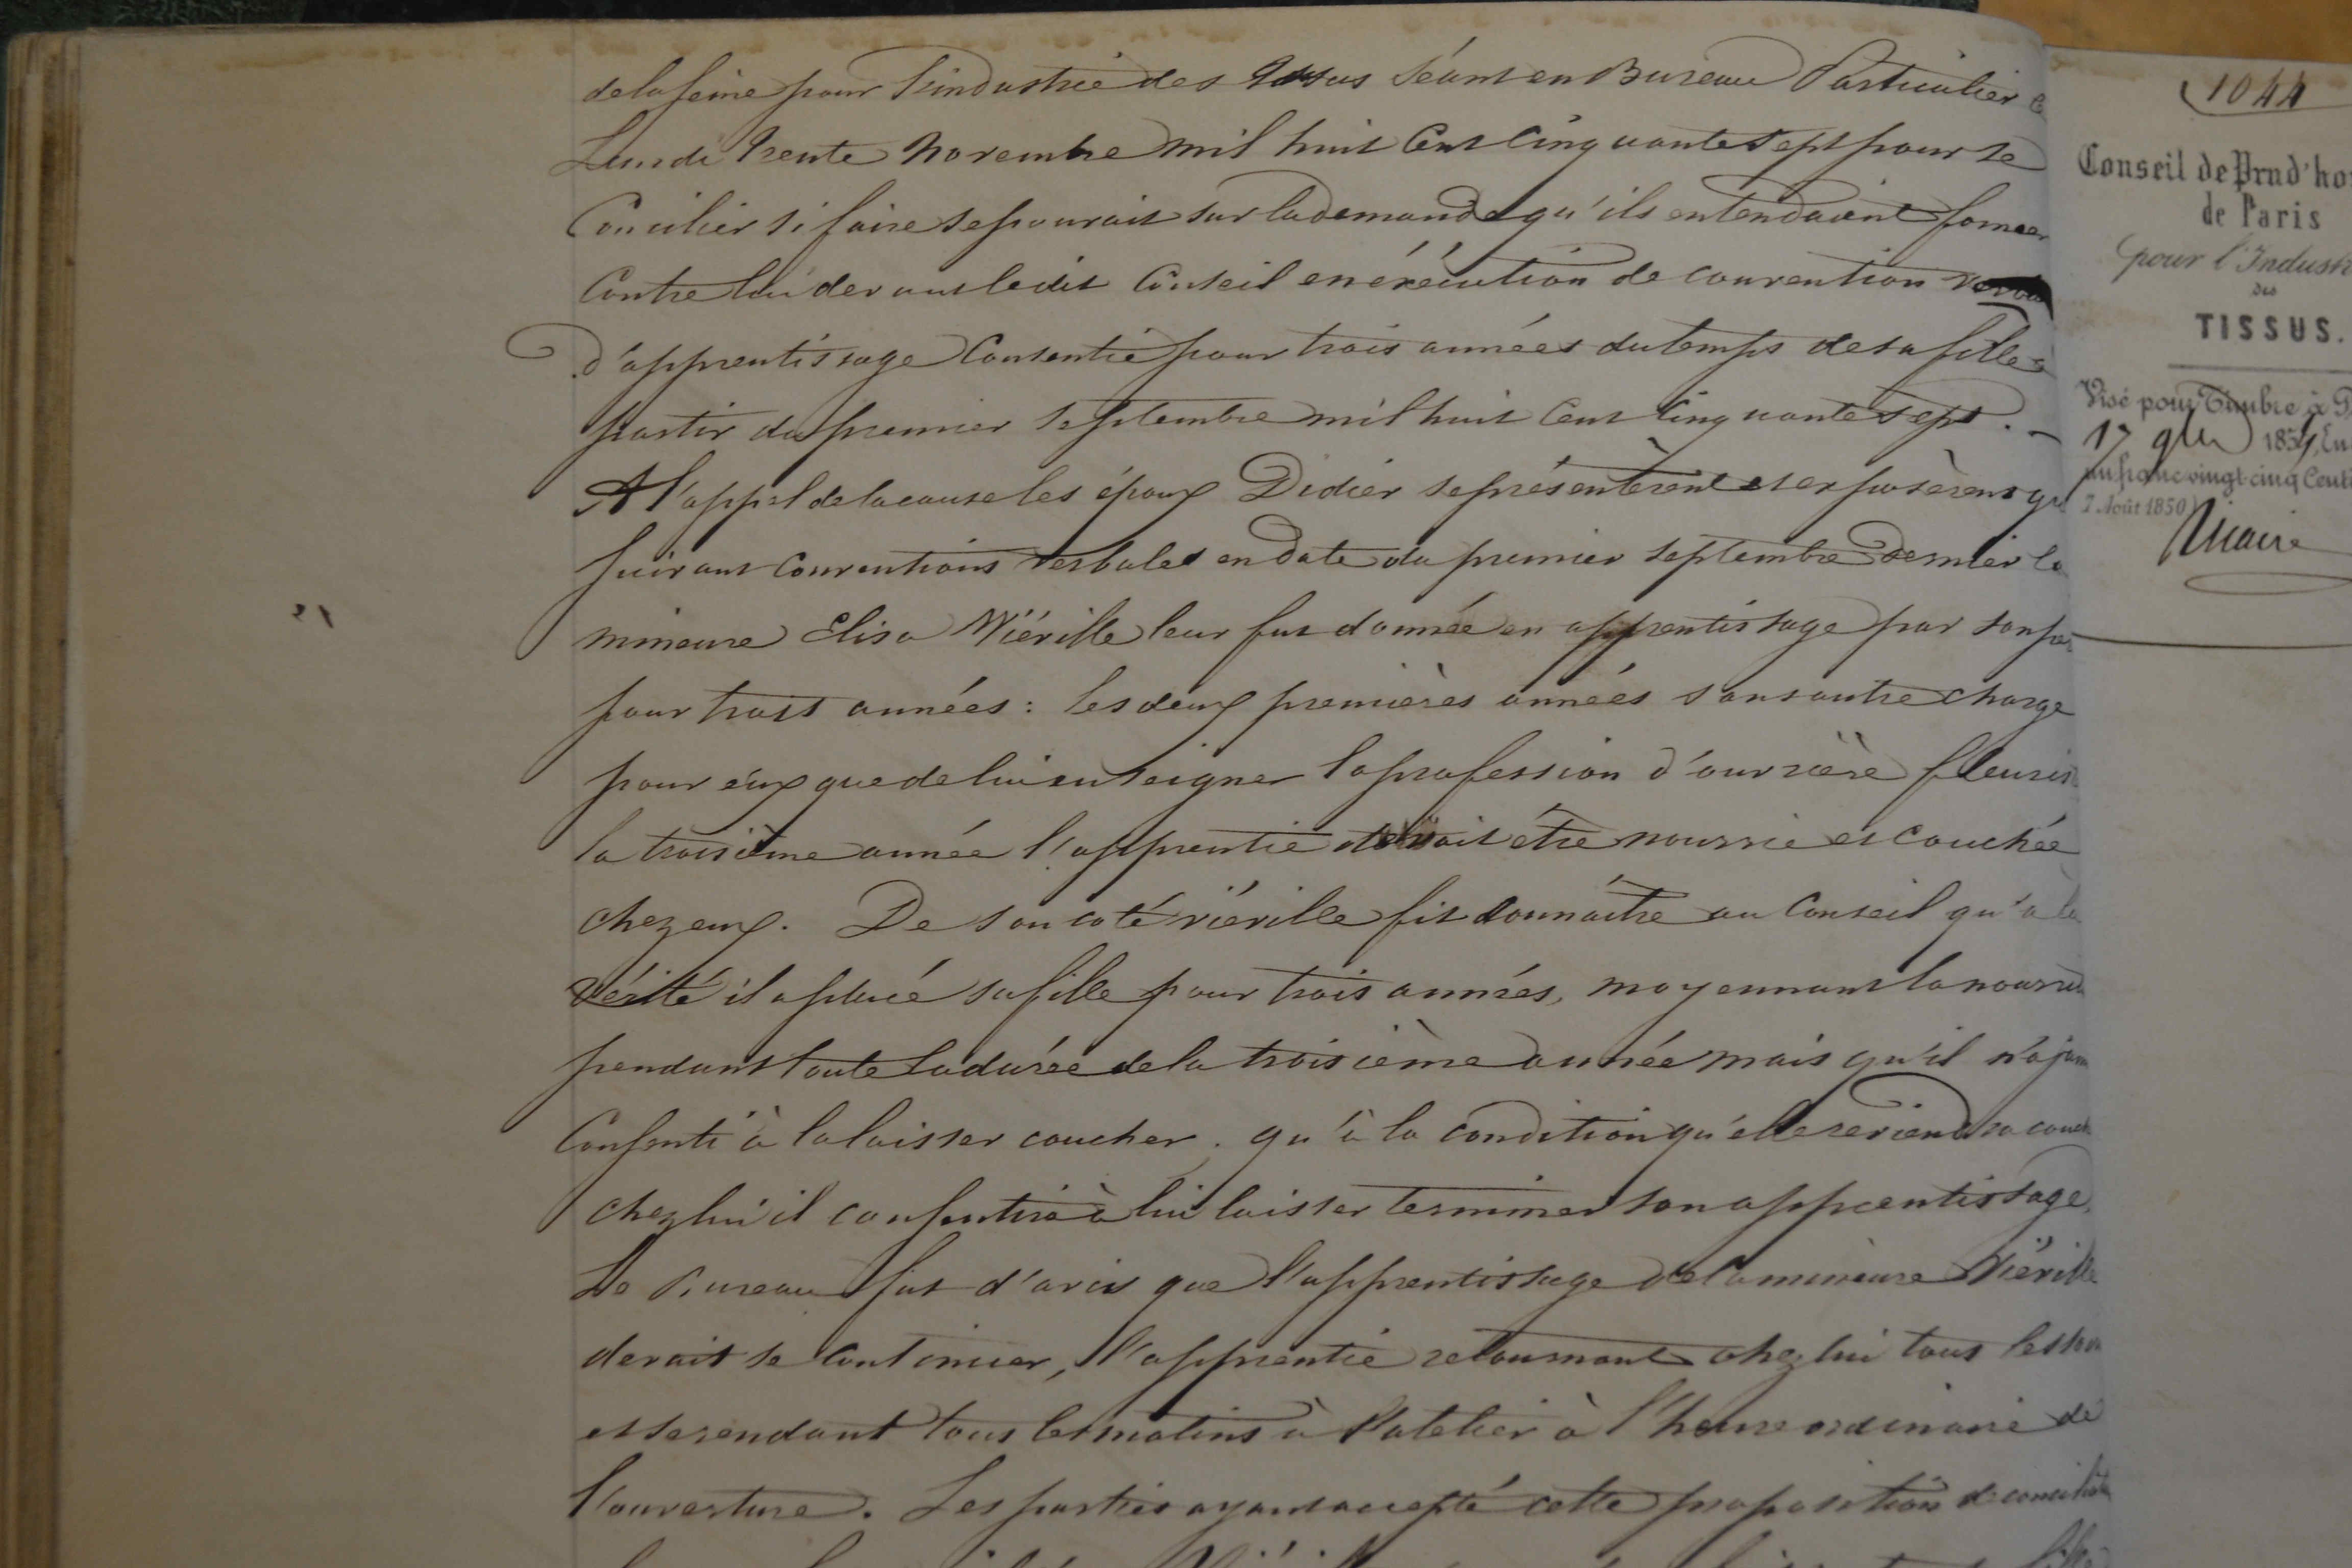 de la seine pour l'industrie des Tissus Séant en Bureau Particulier
Lundi trente Novembre mil huit Cent Cinquante sept pour se
Concilier si faire se pourait sur la demande qu'ils entendaient former
Contre lui devant le dit Conseil en éxécution de convention
d'apprentissage Consentie pour trois années du temps de sa fille à
partir du premier Septembre mil huit Cent Cinquante sept. -
A l'appel de la cause les époux Didier se présentèrent et exposèrent
Suivant Conventions Verbales en date du premier Septembre dernier la
mineure Elisa Viéville leur fut donnée en apprentissage par son
pour trois années : les deux premières années sans autre charge
pour eux que de lui enseigner la profession d'ouvrière
la troisième année l'apprentie devait être nourrie et couchée
chez eux. De son coté viéville fit Connaître au Conseil qu'à la
Vérité il a placé sa fille pour trois années, moyennant la
pendant toute la durée de la troisième année mais qu'il n'a
Consenti à la laisser coucher. qu'à la condition qu'elle
chez lui il consentira à lui laisser terminer son apprentissage,
Le Bureau fut d'avis que l'apprentissage de la mineure Viéville
devait se Continuer, l'apprentie retournant chez lui tous les
et se rendant tous les matins à l'atelier à l'heure ordinaire de
l'ouverture. Les parties ayant accepté cette proposition de
1044
Conseil de Prud'ho
de Paris
pour l'Indust
des
TISSUS.
Visé pour Timbre à P
17 9bre 185 En
un franc vingt cinq Cent
7 Août 1850)